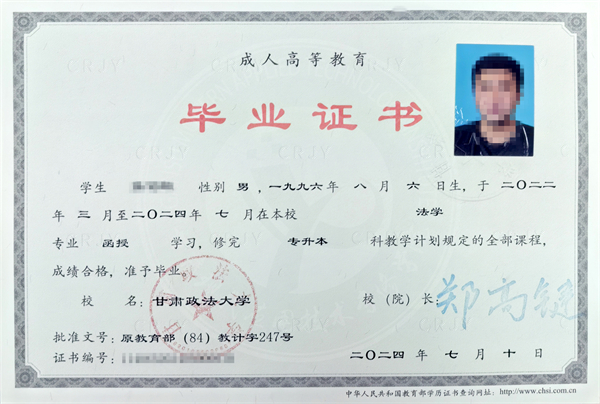 成人高等教育
毕业证书
学生 性别 男，一九九六年 八 月 六 日生，于 二〇二二
年 三 月至二〇二四年 七 月在本校 法学
专业 函授 学习，修完 专升本 科教学计划规定的全部课程，
成绩合格，准予毕业。
校 名：甘肃政法大学 校（院）长：郑高键
批准文号：原教育部（84）教计字247号
证书编号： 二〇二四年 七 月 十 日
中华人民共和国教育部学历证书查询网址：http://www.chsi.com.cn